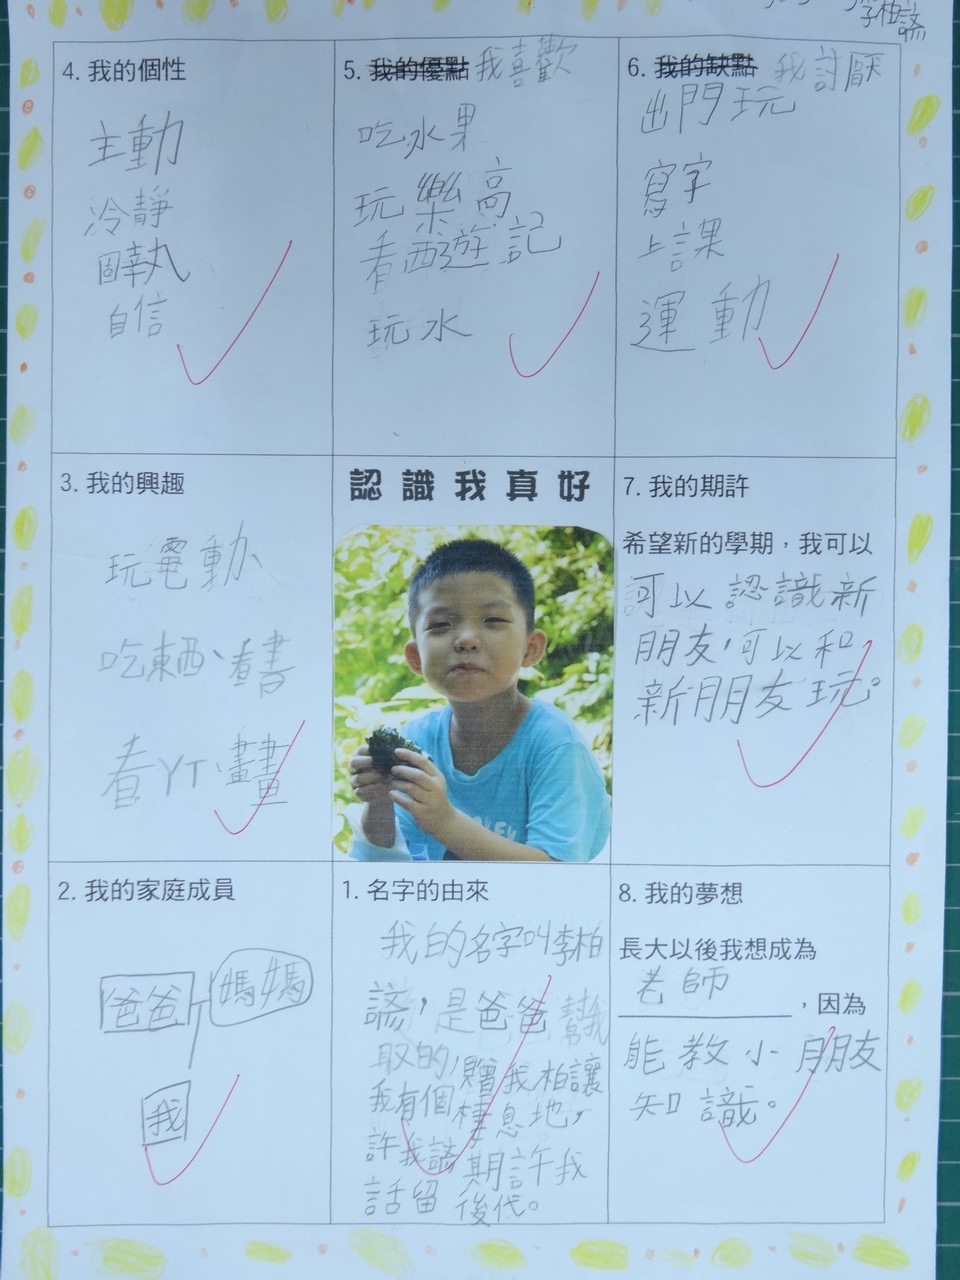 李柏諺
4. 我的個性
主動
冷靜
固執
自信
5. 我的優點 我喜歡
吃水果
玩樂高
看西遊記
玩水
6. 我的缺點 我討厭
出門玩
寫字
上課
運動
3. 我的興趣
玩電動、
吃東西、看書
看YT、畫畫
認識我真好
7. 我的期許
希望新的學期，我可以
可以認識新
朋友，可以和
新朋友玩。
2. 我的家庭成員
爸爸 媽媽
我
1. 名字的由來
我的名字叫李柏
諺，是爸爸幫我
取的，贈我柏讓
我有個棲息地，
許我諺 期許我
話留後代。
8. 我的夢想
長大以後我想成為
老師，因為
能教小朋友
知識。